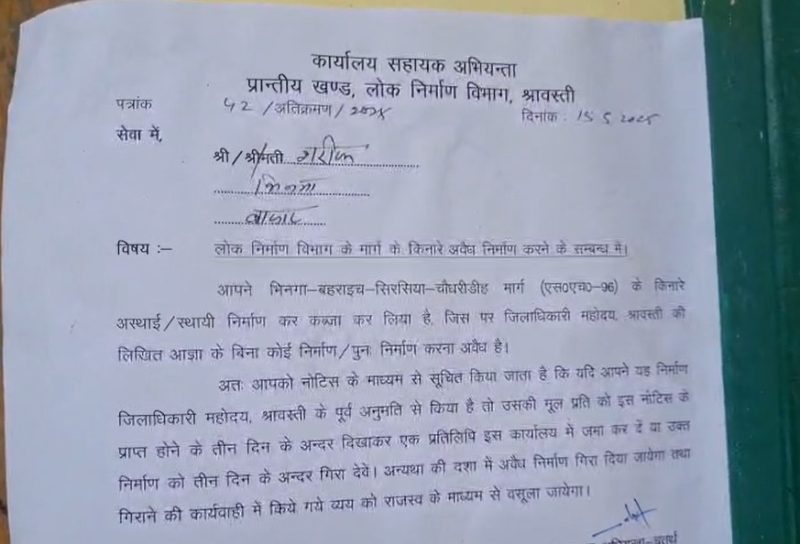 कार्यालय सहायक अभियन्ता
प्रान्तीय खण्ड, लोक निर्माण विभाग, श्रावस्ती
पत्रांक 42 /अतिक्रमण/ 2025 दिनांक : 15 5 2025
सेवा में,
श्री/श्रीमती शरीफ
भिनगा
बाजार
विषय :– लोक निर्माण विभाग के मार्ग के किनारे अवैध निर्माण करने के सम्बन्ध में।
आपने भिनगा–बहराइच–सिरसिया–चौधरीडीह मार्ग (एस०एच०–96) के किनारे
अस्थाई/स्थायी निर्माण कर कब्जा कर लिया है, जिस पर जिलाधिकारी महोदय, श्रावस्ती की
लिखित आज्ञा के बिना कोई निर्माण/पुनः निर्माण करना अवैध है।
अतः आपको नोटिस के माध्यम से सूचित किया जाता है कि यदि आपने यह निर्माण
जिलाधिकारी महोदय, श्रावस्ती के पूर्व अनुमति से किया है तो उसकी मूल प्रति को इस नोटिस के
प्राप्त होने के तीन दिन के अन्दर दिखाकर एक प्रतिलिपि इस कार्यालय में जमा कर दें या उक्त
निर्माण को तीन दिन के अन्दर गिरा देवें। अन्यथा की दशा में अवैध निर्माण गिरा दिया जायेगा तथा
गिराने की कार्यवाही में किये गये व्यय को राजस्व के माध्यम से वसूला जायेगा।